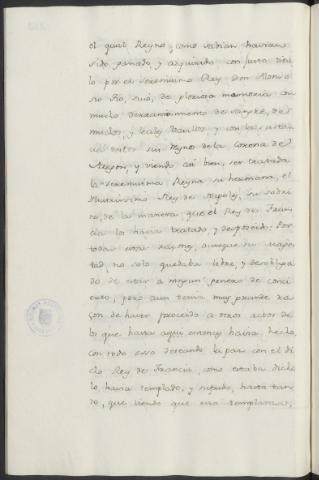 el qual Reyno, como sabian havia
sido ganado, y adquirido con justo titu
lo por el serenissimo Rey Don Alonso
su tio, de gloriosa memoria con
mucho derramamiento de sangre, de
muchos, y leales vasallos y con la
de estos sus Reynos de la Corona de
Aragon, y viendo assi bien, ser tratada
la serenissima Reyna su hermana, el
Illustrissimo Rey de Napoles, su sobri
no, de la manera, que el Rey de Fran
cia lo havia tratado, y desposeido: Por
todas estas razones, aunque su Mages
tad, no solo quedaba libre, y desobliga
do de estar a ningun genero de conci
erto; pero aun tenia muy grande ra
zon de haver procedido a otros actos de
los que hasta aqui entonces havia hecho,
con todo esso deseando la paz con el di
cho Rey de Francia, como estaba dicho
lo havia templado, y sufrido, hasta tan
to, que viendo que esta templanza,